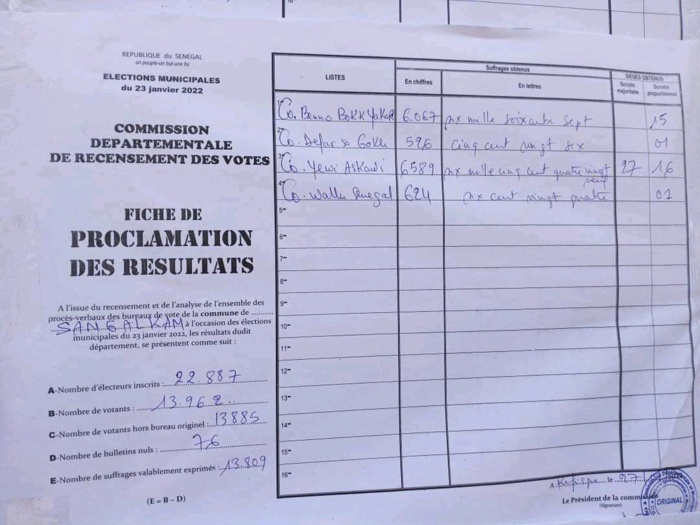 REPUBLIQUE du SENEGAL
un peuple-un but-une foi
ELECTIONS MUNICIPALES
du 23 janvier 2022
COMMISSION
DEPARTEMENTALE
DE RECENSEMENT DES VOTES
FICHE DE
PROCLAMATION
DES RESULTATS
A l'issue du recensement et de l'analyse de l'ensemble des
procès-verbaux des bureaux de vote de la commune de
SANGALKAM à l'occasion des élections
municipales du 23 janvier 2022, les résultats dudit
département, se présentent comme suit :
A-Nombre d'électeurs inscrits : 22.887
B-Nombre de votants : 13962
C-Nombre de votants hors bureau originel : 13885
D-Nombre de bulletins nuls : 76
E-Nombre de suffrages valablement exprimés : 13.809
(E = B - D)
LISTES
Suffrages obtenus
En chiffres
En lettres
SIEGES OBTENUS
Scrutin majoritaire
Scrutin proportionnel
Co. Benno Bokk Yakar 6.067 six mille soixante sept 15
Co. Defar sa Gokh 526 cinq cent vingt six 01
Co. Yewi Askanwi 6589 six mille cinq cent quatre vingt neuf 27 16
Co. Wallu Senegal 624 six cent vingt quatre 01
5-
6-
7-
8-
9-
10-
11-
12-
13-
14-
15-
16-
A le 27
Le Président de la commission
(Signature)
ORIGINAL